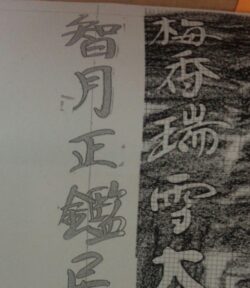 梅香瑞雪大
智月正鑑